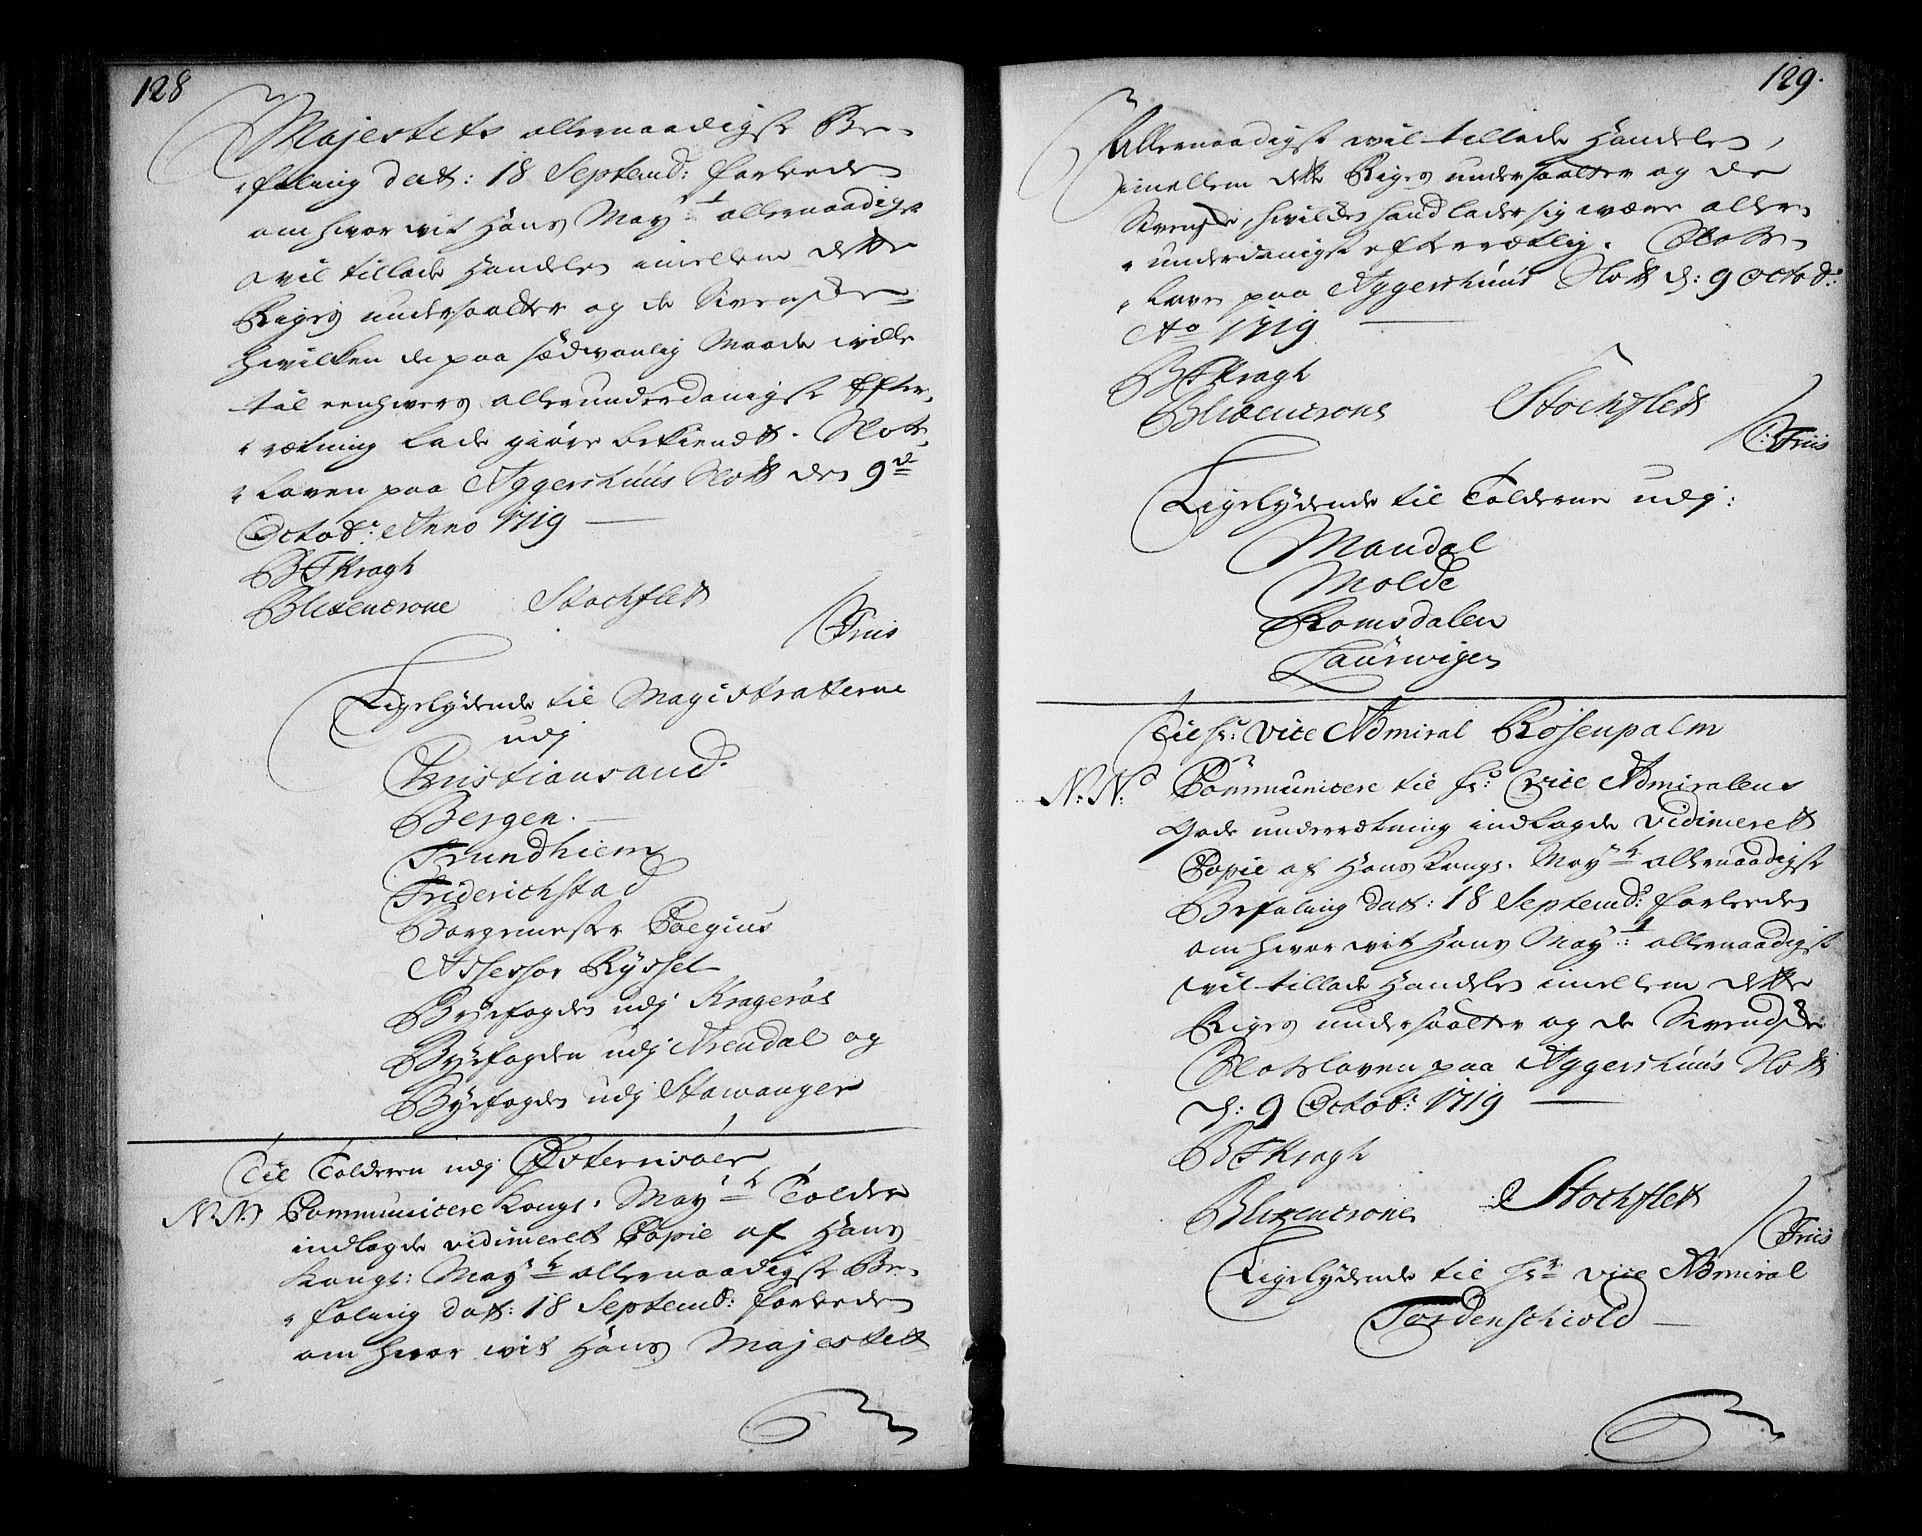 128
Majestets allernaadigste Be-
falning dat: 18 Septemb: forleeden
om hvor wit Hans May:t allernaadigst
wil tillade Handelen imellem dette
Riges undersaatter og de Svenske,
hvilken de paa sædvanlig Maade wille
til eenhvers allerunderdanigste Efter-
rætning lade giøre bekiendt. Slots-
Loven paa Aggershuus Slott den 9de
Octobr: Anno 1719
B F Kragh
Blixencrone Stochflett
C Friis
Ligelydende til Magistratterne
udj
Christiansand.
Bergen.
Trundhiem
Friderichstad
Borgemester Coegius
Assessor Ryssel
Byefogden udj Kragerøe
Byefogden udj Arendal og
Byefogden udj Stawanger
Til Tolderen udj Østerrisøer
N.N. Communicere Kongl. Mayts Tolder
indlagde vidimerett Copie af Hans
Kongl: Mayts allernaadigste Be-
falning dat: 18 Septemb: forleeden
om hvor wit Hans Majestett
129.
Allernaadigst wil tillade Handelen,
imellem dette Riges undersaatter og de
Svenske, hvildes hand lader sig være aller-
underdanigst efterrætlig. Slots-
Loven paa Aggershuus Slott d: 9 Octob:
Ao 1719
B F Kragh
Blixencrone Stochflett
C: Friis
Ligelydende til Tolderne udj:
Mandal
Molde
Romsdalen
Laurwigen
Til hr: Vice Admiral Rosenpalm
N: N: Communicere til hr: Vice Admiralens
Gode underrætning indlagde Vidimerett
Copie af Hans Kongl. Mayts allernaadigste
Befalning dat: 18 Septemb: forleeden
om hvor wit Hans May:t allernaadigst
wil tillade Handelen imellem dette
Riges undersaatter og de Svendske
Slotsloven paa Aggershuus Slott
d: 9 Octobr: 1719
B F Kragh
Blixencrone Stochflett
C Friis
Ligelydende til hr: Vice Admiral
Tordenschiold